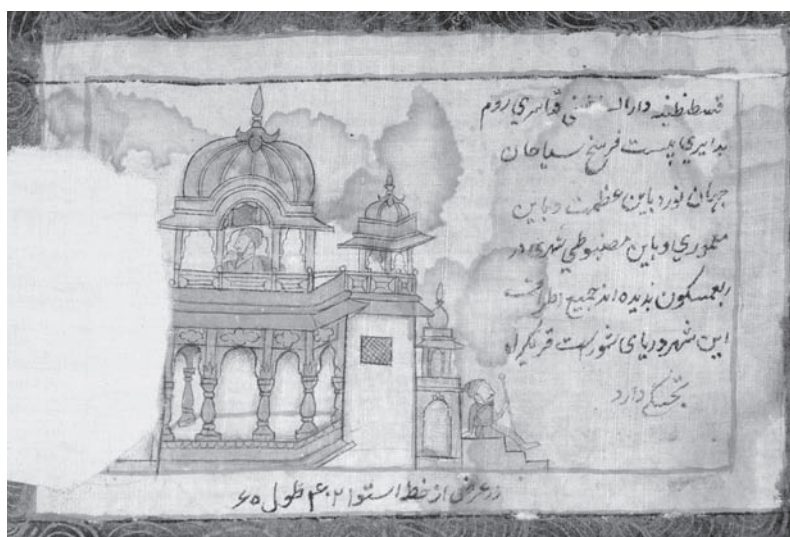 قسطنطنیه روم
بدایري بیست فرسخ سیاحان
جهان نورد باین عظمت و باین
معموري و باین مضبوطي شهري در
ربعمسکون ندیده اند جمیع اطراف
این شهر دریای شورست
بخشکي دارد
عرض از خط استوا طول ۶۵